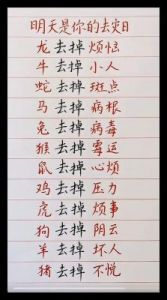 明天是你的去灾日
龙去掉烦恼
牛去掉小人
蛇去掉斑点
马去掉病根
兔去掉病毒
猴去掉霉运
鼠去掉心烦
鸡去掉压力
虎去掉烦事
狗去掉阴云
羊去掉坏人
猪去掉不悦